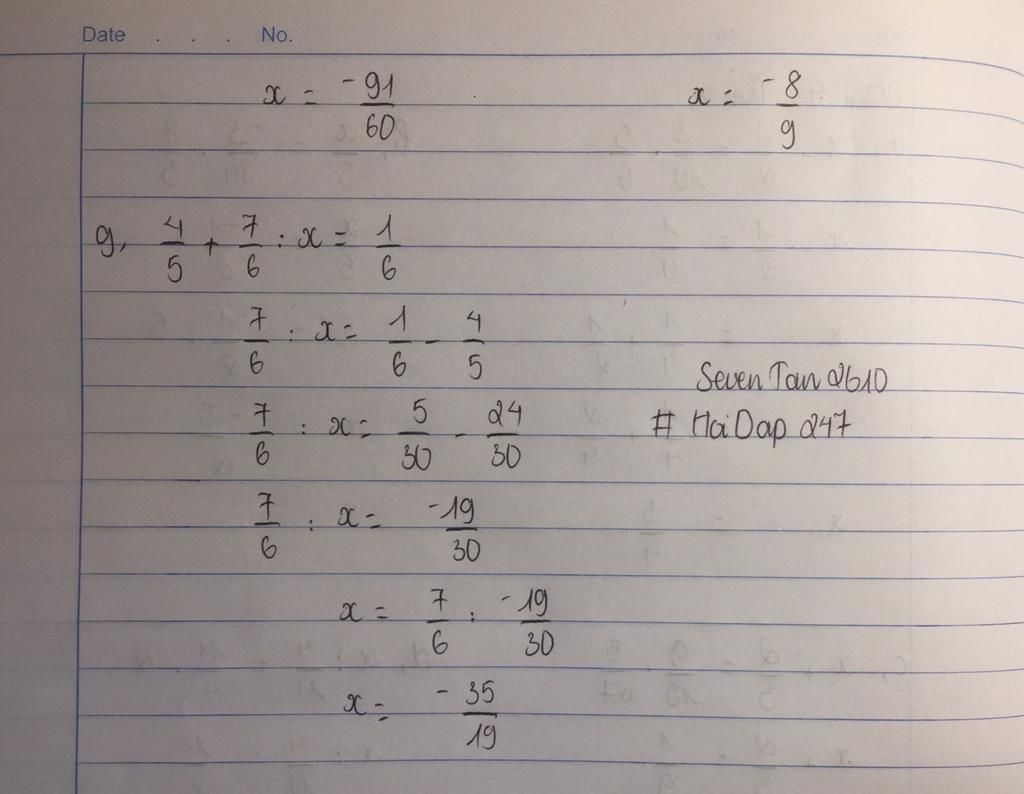 Date . . . No.
x = -91/60
x = -8/9
g, 4/5 + 7/6 : x = 1/6
7/6 : x = 1/6 - 4/5
7/6 : x = 5/30 - 24/30
7/6 : x = -19/30
x = 7/6 : -19/30
x = -35/19
SevenTan2610
# HoiDap 247